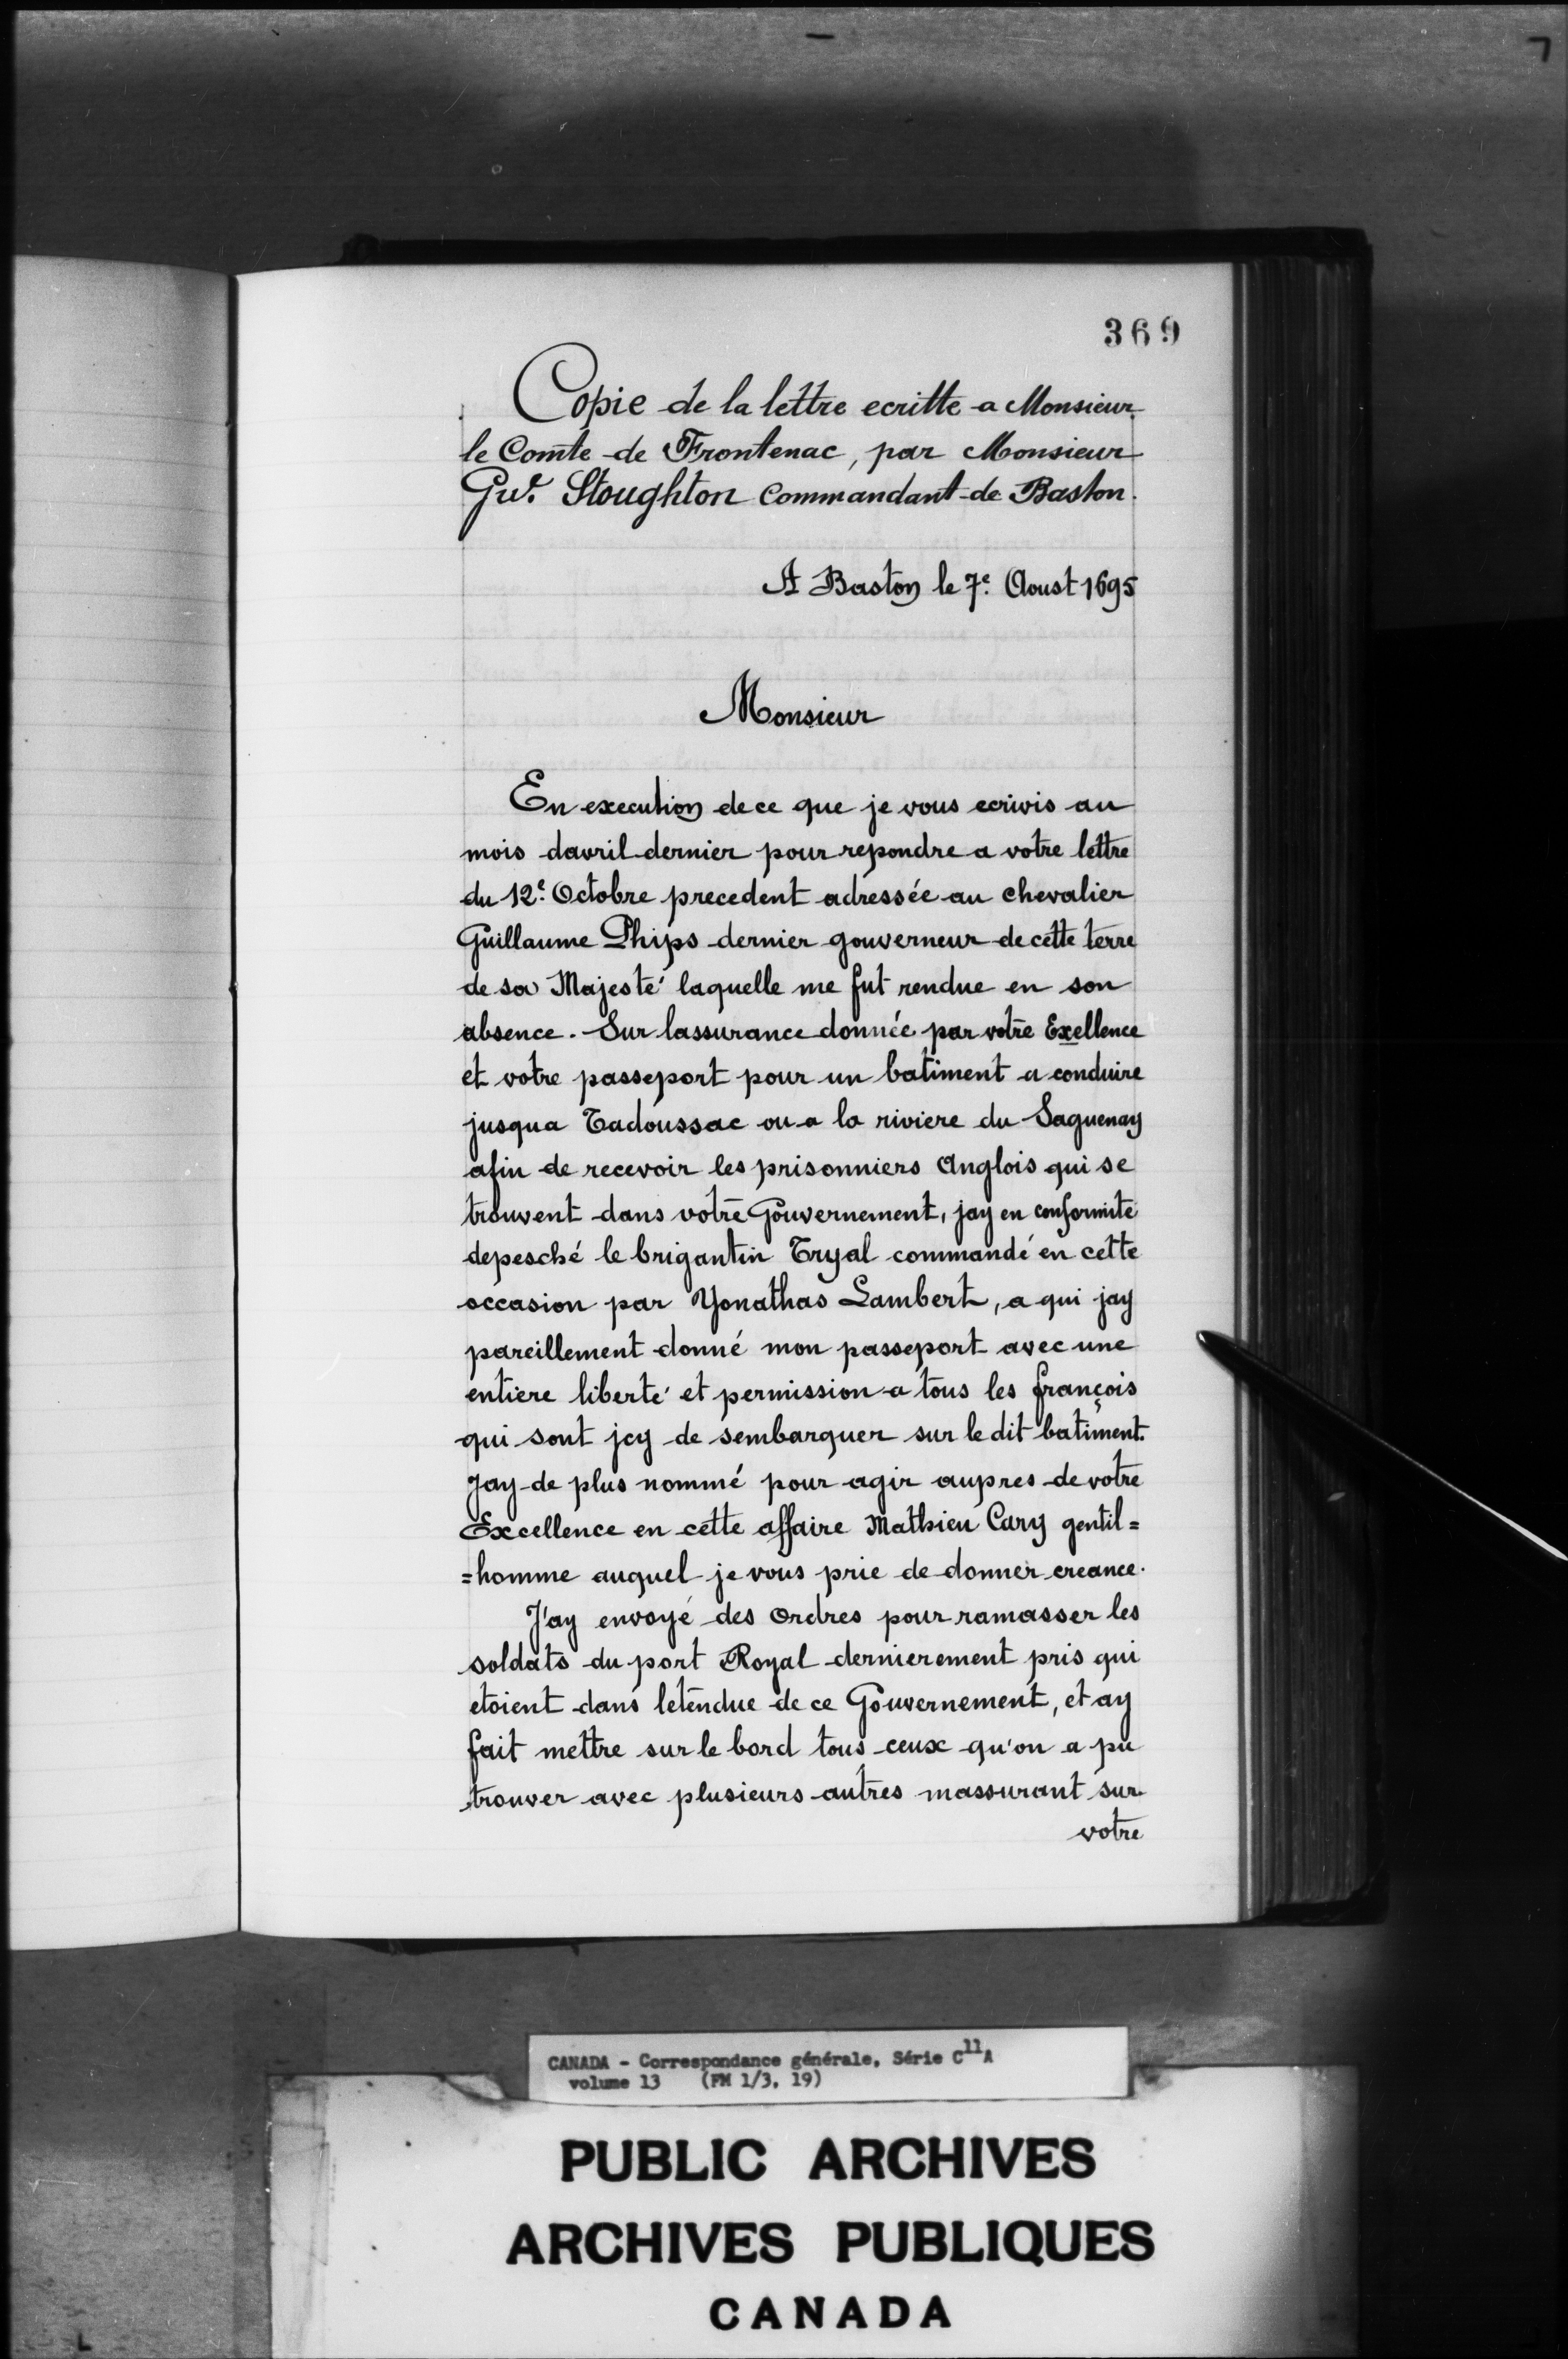 369
Copie de la lettre ecritte a Monsieur
le Comte de Frontenac, par Monsieur
Guᵉ. Stoughton Commandant de Baston.
A Baston le 7ᵉ. Aoust 1695
Monsieur
En execution de ce que je vous ecrivis au
mois davril dernier pour repondre a votre lettre
du 12ᵉ. Octobre precedent adressée au chevalier
Guillaume Phips dernier gouverneur de cette terre
de sa Majesté laquelle me fut rendue en son
absence. Sur lassurance donnée par votre Exellence
et votre passeport pour un batiment a conduire
jusqua Tadoussac ou a la riviere du Saguenay
afin de recevoir les prisonniers Anglois qui se
trouvent dans votre Gouvernement, jay en conformité
depesché le brigantin Tryal commandé en cette
occasion par Yonathas Lambert, a qui jay
pareillement donné mon passeport avec une
entiere liberté et permission a tous les françois
qui sont jcy de sembarquer sur le dit batiment.
Jay de plus nommé pour agir aupres de votre
Excellence en cette affaire Mathieu Cary gentil=
=homme auquel je vous prie de donner creance.
J'ay envoyé des Ordres pour ramasser les
soldats du port Royal dernierement pris qui
etoient dans letendue de ce Gouvernement, et ay
fait mettre sur le bord tous ceux qu'on a pu
trouver avec plusieurs autres massurant sur
votre
CANADA - Correspondance générale, Série C11A
volume 13 (FM 1/3, 19)
PUBLIC ARCHIVES
ARCHIVES PUBLIQUES
CANADA